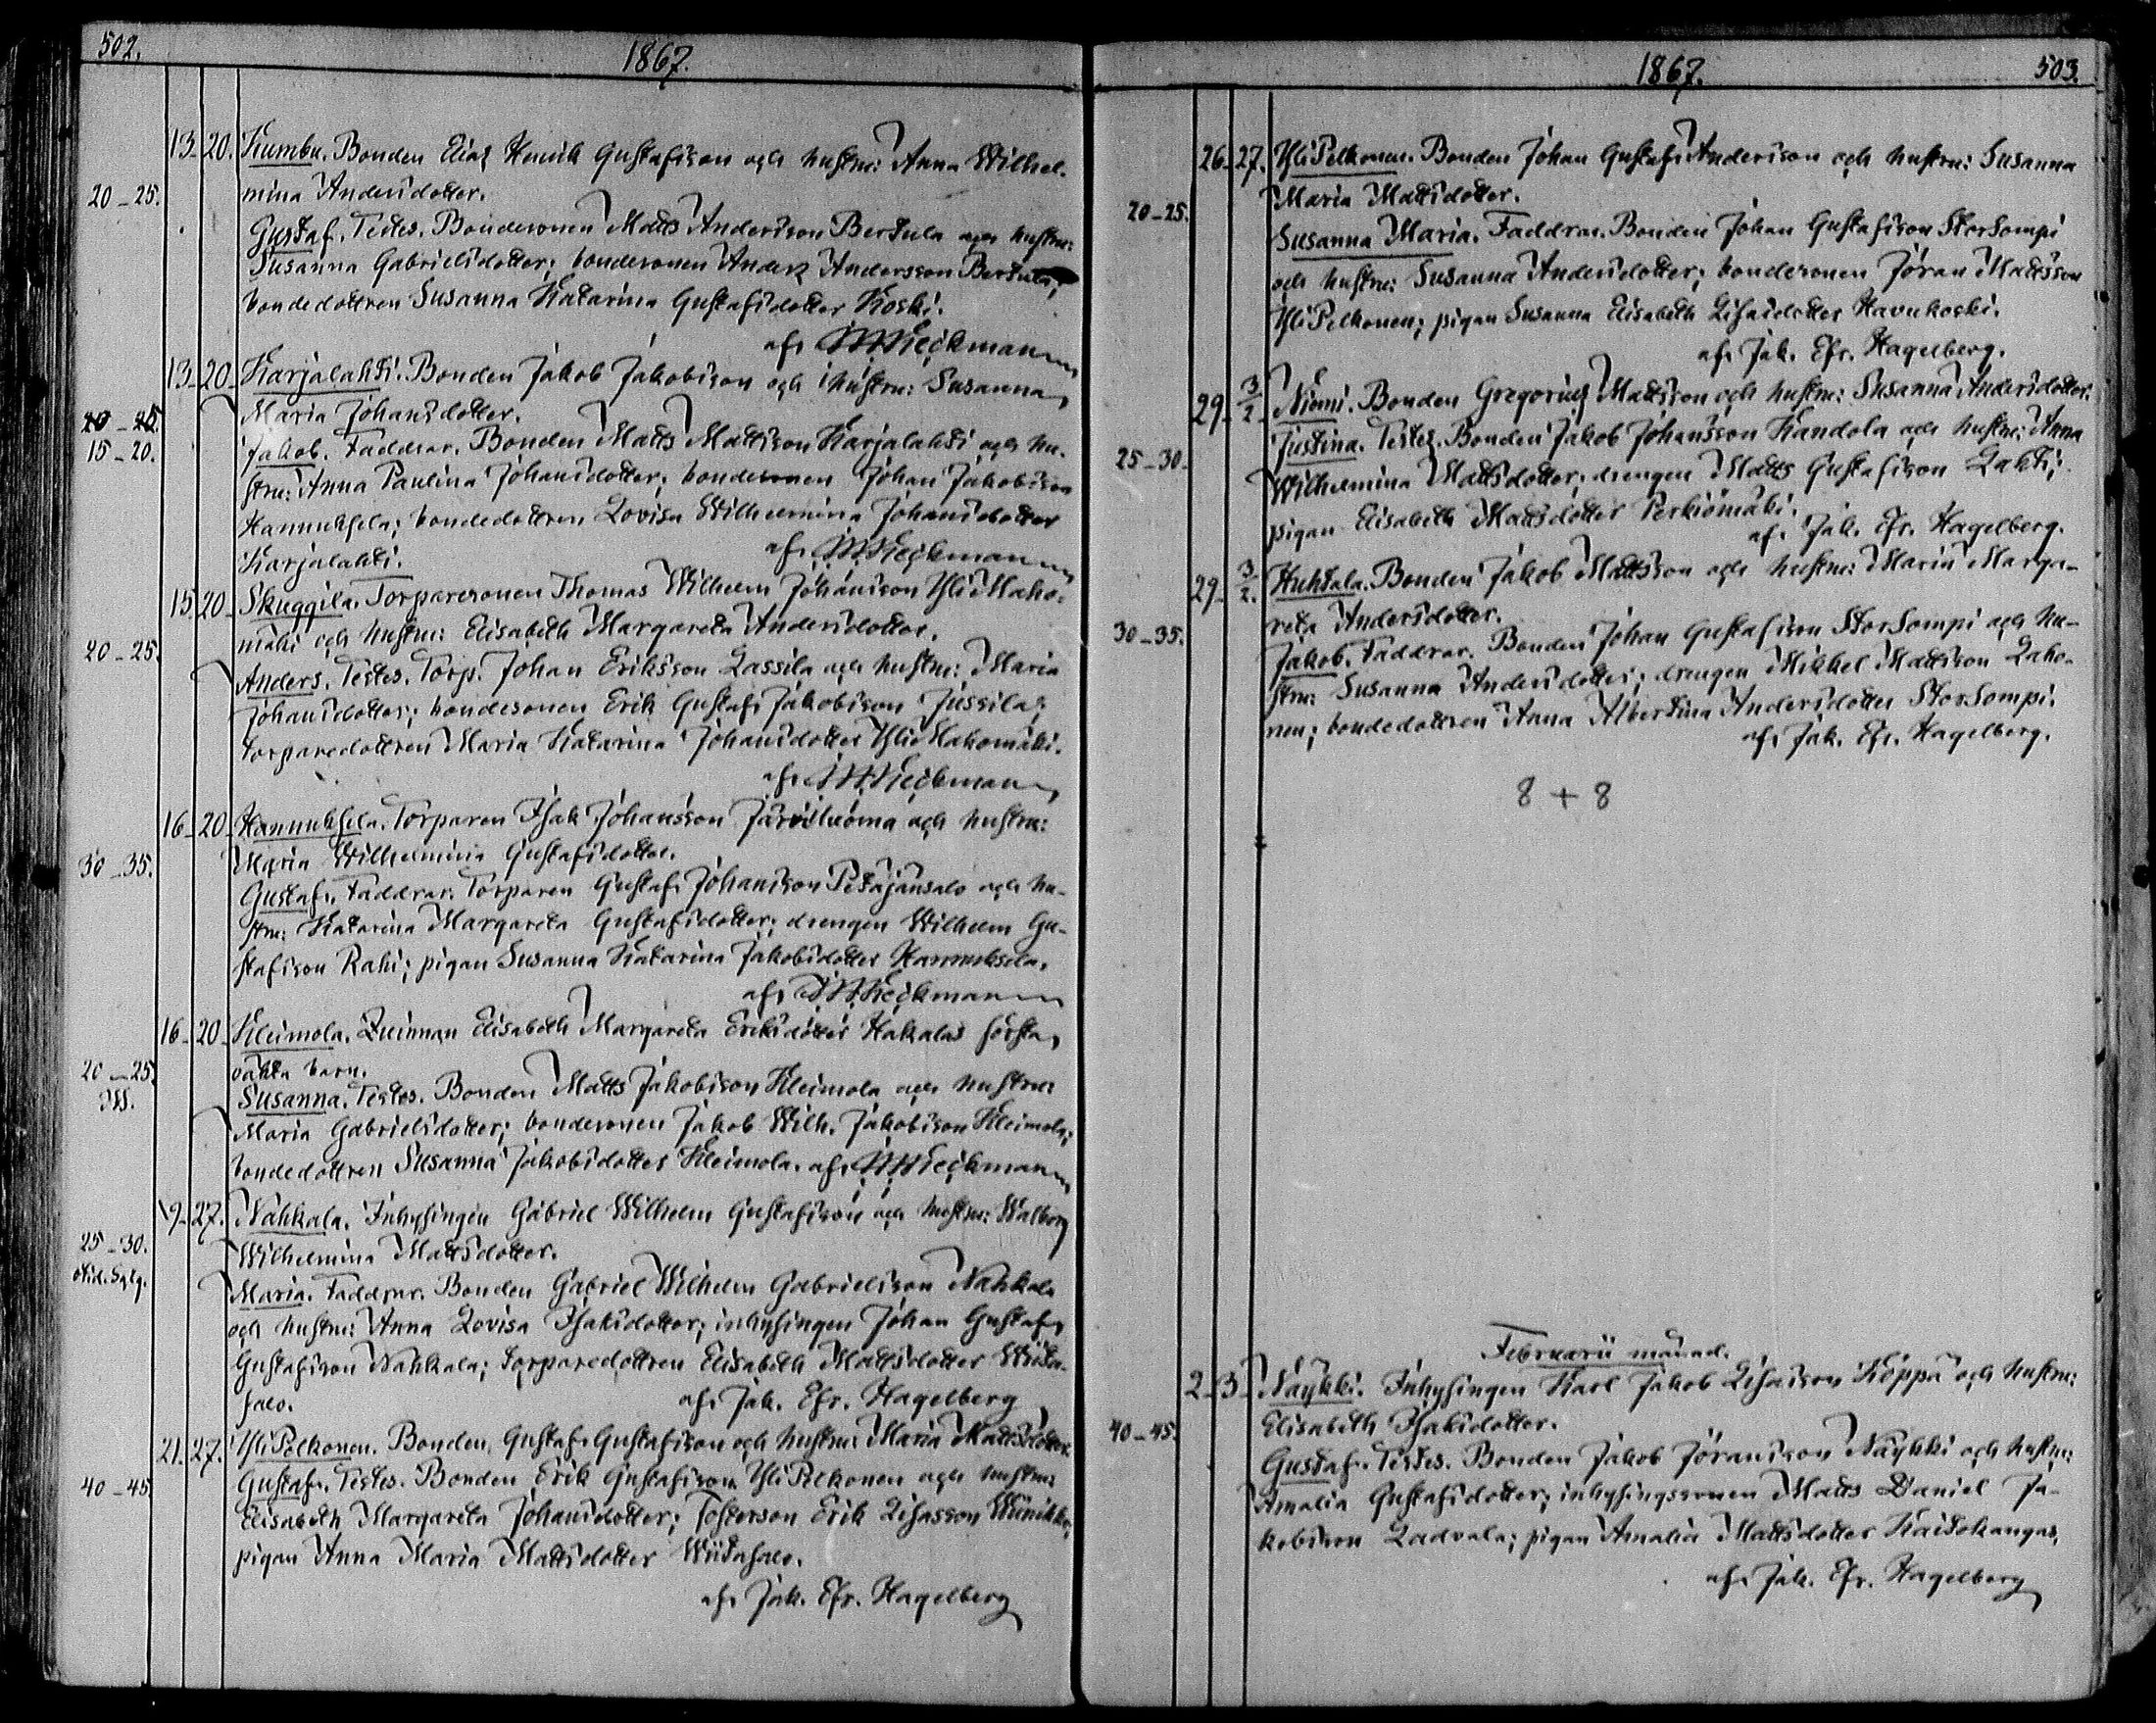 502.
1867.
13. 20. Kumbu. Bonden Elias Henrik Gustafsson och hustru: Anna Wilhel-
20-25. mina Andersdotter.
Gustaf. Testes. Bondesonen Matts Andersson Bertula och hustru:
Susanna Gabrielsdotter; bondesonen Anders Andersson Bertula;
bondedottren Susanna Katarina Gustafsdotter Koski.
af Heickman
13-20- Karjalahti. Bonden Jakob Jakobsson och hustru: Susanna
20-25. Maria Johansdotter.
15-20. Jakob. Faddrar. Bonden Matts Mattsson Karjalahti och hu-
stru: Anna Paulina Johansdotter; bondesonen Johan Jakobsson
Hannuksela; bondedottren Lovisa Wilhelmina Johansdotter
Karjalahti. af Heickman
15 20- Skuggila. Torparesonen Thomas Wilhelm Johansson Yli Maho-
mäki och hustru: Elisabeth Margareta Andersdotter.
20-25. Anders. Testes. Torp. Johan Eriksson Lassila och hustru: Maria
Johansdotter; bondesonen Erik Gustaf Jakobsson Jussila;
torparedottren Maria Katarina Johansdotter Yli Mahomäki.
af Heickman
16-20- Hannuksela. Torparen Isak Johansson Järviluoma och hustru:
30-35. Maria Wilhelmina Gustafsdotter.
Gustaf. Faddrar. Torparen Gustaf Johansson Petäjänsalo och hu-
stru: Katarina Margareta Gustafsdotter; drengen Wilhelm Gu-
stafsson Rahi; pigan Susanna Katarina Jakobsdotter Hannuksela.
af Heickman
16-20- Kleimola. Quinnan Elisabeth Margareta Eriksdotter Hakalas första
20-25. oäkta barn.
Susanna. Testes. Bonden Matts Jakobsson Kleimola och hustru:
Maria Gabrielsdotter; bondesonen Jakob Wilh. Jakobsson Kleimola;
bondedottren Susanna Jakobsdotter Kleimola. af Heickman
19-27. Nahkala. Inhysingen Gabriel Wilhelm Gustafsson och hustru: Walborg
25-30. Wilhelmina Mattsdotter.
Maria. Faddrar. Bonden Gabriel Wilhelm Gabrielsson Nahkala
och hustru: Anna Lovisa Isaksdotter; inhysingen Johan Gustaf
Gustafsson Nahkala; torparedottren Elisabeth Mattsdotter Wiita-
salo. af Jak. Efr. Hagelberg
21. 27. Yli Pelkonen. Bonden Gustaf Gustafsson och hustru Maria Mattsdotter.
40-45 Gustaf. Testes. Bonden Erik Gustafsson Yli Pelkonen och hustru:
Elisabeth Margareta Johansdotter; fosterson Erik Lisasson Wiinikka;
pigan Anna Maria Mattsdotter Wiitasalo.
af Jak. Efr. Hagelberg
1867.
503.
26-27. Yli Pelkonen. Bonden Johan Gustaf Andersson och hustru: Susanna
20-25. Maria Mattsdotter.
Susanna Maria. Faddrar. Bonden Johan Gustafsson Storsompi
och hustru: Susanna Andersdotter; bondesonen Jöran Mattsson
Yli Pelkonen; pigan Susanna Elisabeth Lisaidotter Havukoski.
af Jak. Efr. Hagelberg.
29- 3/2 Niemi. Bonden Gregorius Mattsson och hustru: Susanna Andersdotter.
25-30- Justina. Testes. Bonden Jakob Johansson Kandola och hustru: Anna
Wilhelmina Mattsdotter; drengen Matts Gustafsson Lahti;
pigan Elisabeth Mattsdotter Perkiömäki.
af Jak. Efr. Hagelberg.
29- 3/2. Huhtala. Bonden Jakob Mattsson och hustru: Maria Marga-
30-35. reta Andersdotter.
Jakob. Faddrar. Bonden Johan Gustafsson Storsompi och hu-
stru: Susanna Andersdotter; drengen Mikkel Mattsson Laho-
nen; bondedottren Anna Albertina Andersdotter Storsompi.
af Jak. Efr. Hagelberg.
8 + 8
Februarii månad.
2-3- Näykki. Inhysingen Karl Jakob Lisaisson Köppä och hustru:
40-45. Elisabeth Isaksdotter.
Gustaf. Testes. Bonden Jakob Jöransson Näykki och hustru:
Amalia Gustafsdotter; inhysingssonen Matts Daniel Ja-
kobsson Ladvala; pigan Amalia Mattsdotter Kaitokangas.
af Jak. Efr. Hagelberg